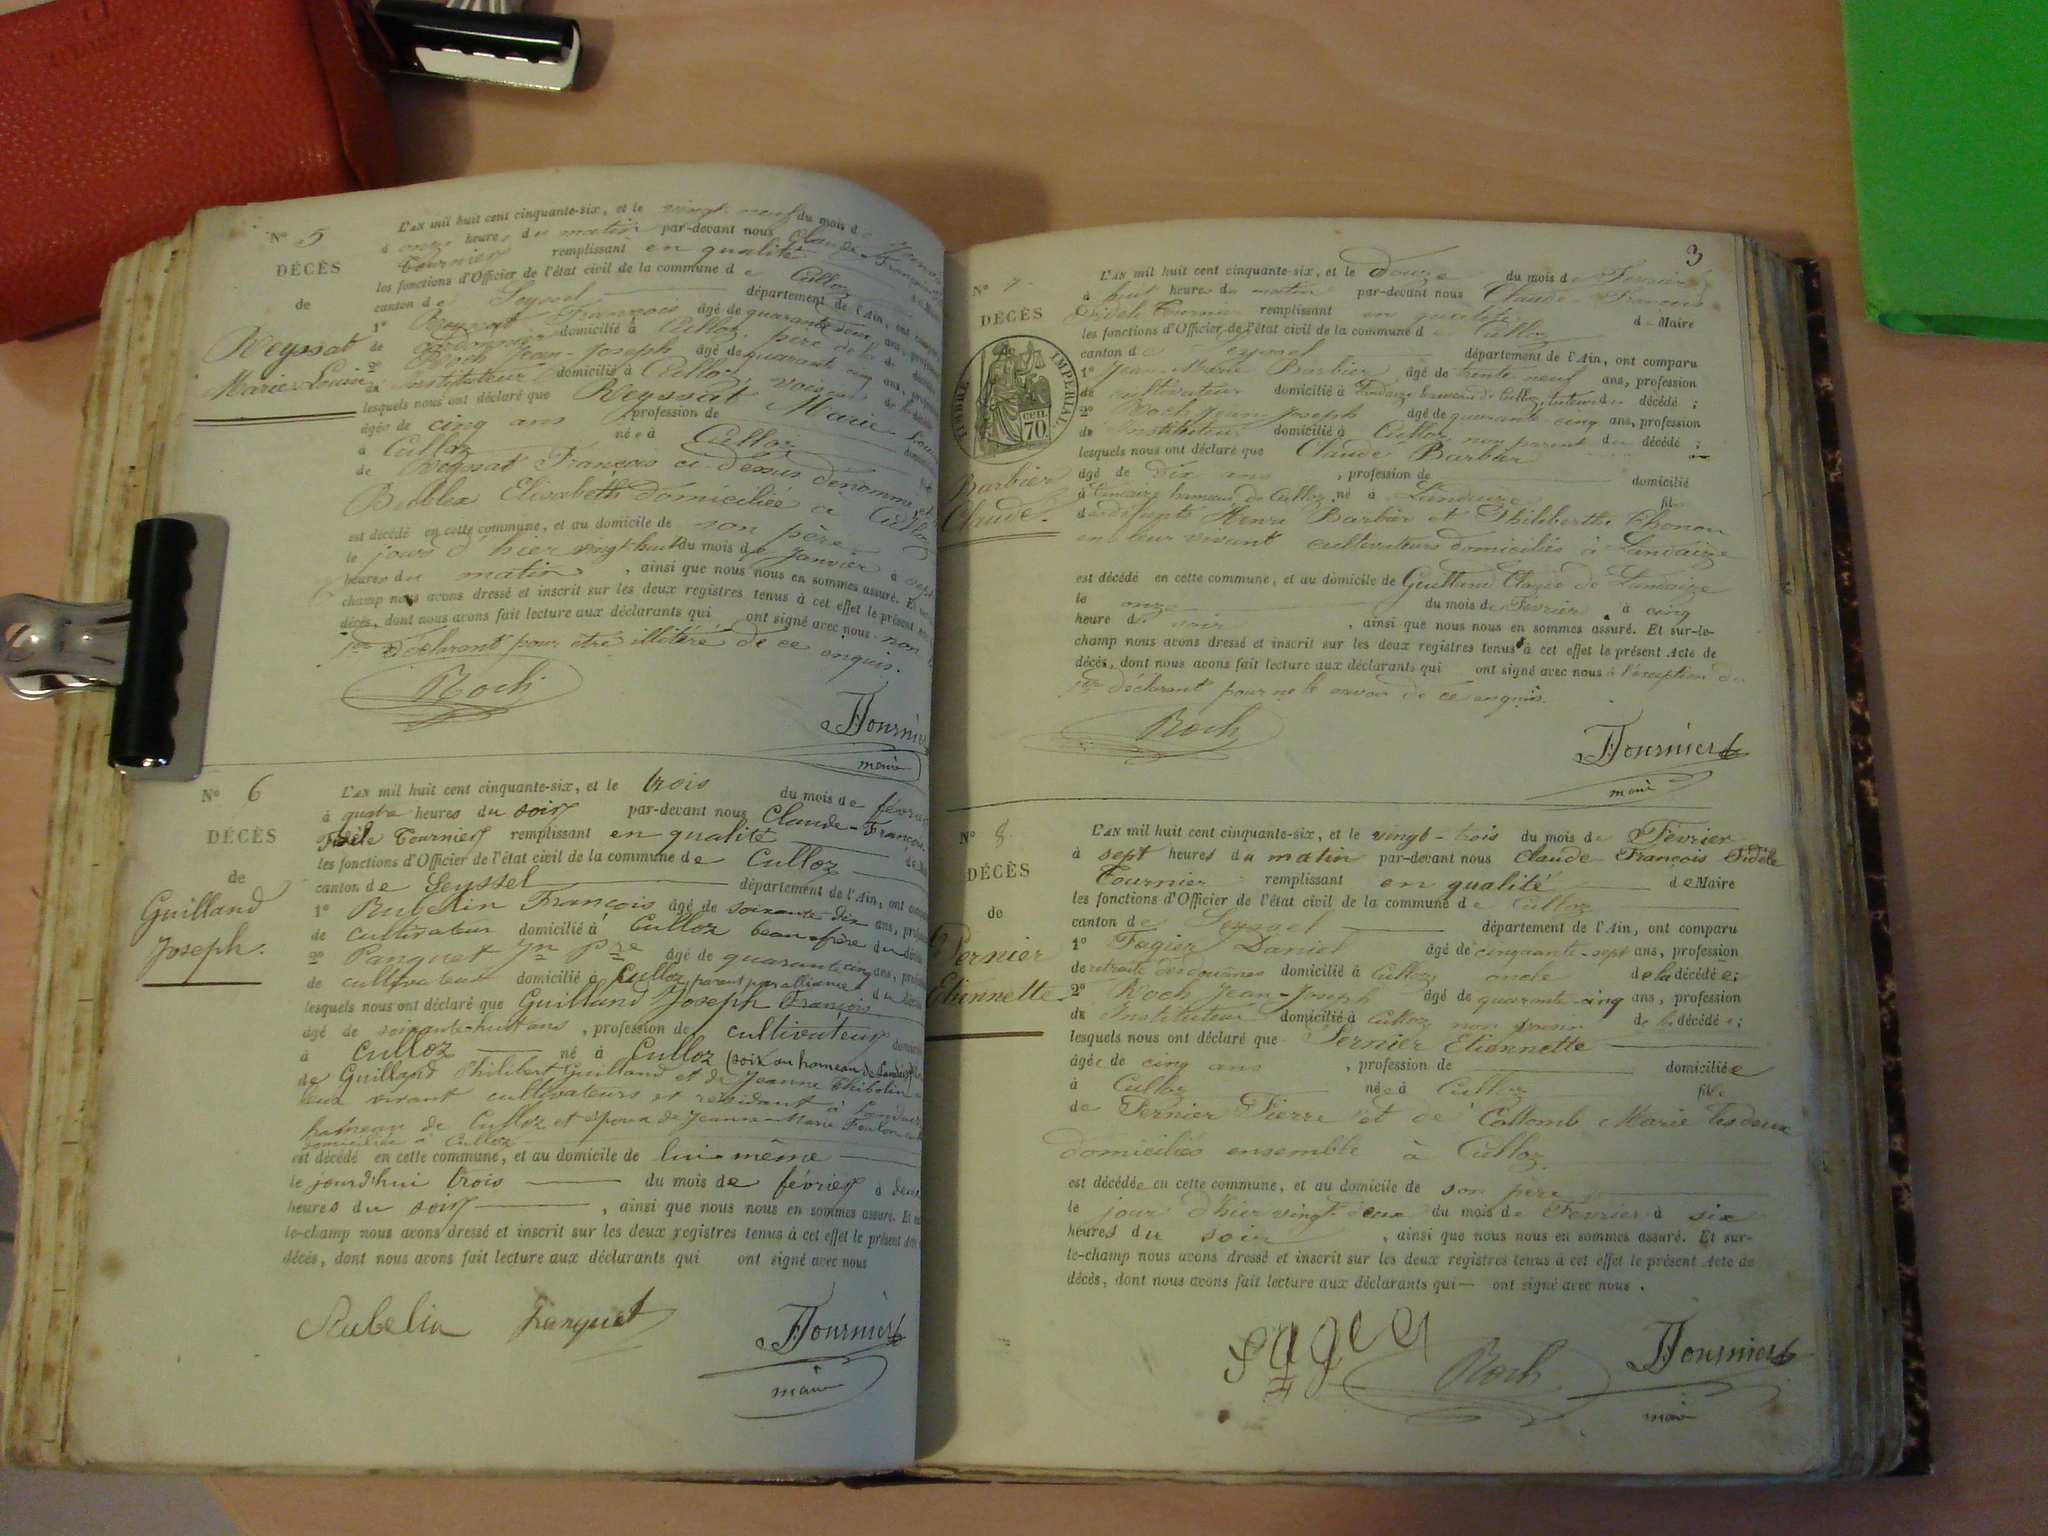 N° 5
DÉCÈS
de
Reyssat
Marie-Louise
L'AN mil huit cent cinquante-six, et le vingt-neuf du mois de
à onze heures du matin par-devant nous Claude François
Tournier remplissant en qualité
les fonctions d'Officier de l'état civil de la commune de Culloz
canton de Seyssel département de l'Ain, ont comparu
1° Reyssat François âgé de quarante deux ans,
de domicilié à Culloz, père de la
2° Roch Jean-Joseph âgé de quarante cinq ans,
de Instituteur domicilié à Culloz, voisin
lesquels nous ont déclaré que Reyssat Marie
âgée de cinq ans profession de
à Culloz née à Culloz
de Reyssat François ci-dessus dénommé et
Bublex Elisabeth domiciliée à Culloz
est décédé en cette commune, et au domicile de son père
le jours d'hier vingt huit du mois de Janvier à onze
heures du matin, ainsi que nous nous en sommes assuré. Et
champ nous avons dressé et inscrit sur les deux registres tenus à cet effet le présent
décès, dont nous avons fait lecture aux déclarants qui ont signé avec nous non le
1er déclarant pour être illitéré de ce enquis.
Roch
Tournier
maire
N° 6
DÉCÈS
de
Guilland
Joseph.
L'AN mil huit cent cinquante-six, et le trois du mois de février
à quatre heures du soir par-devant nous Claude-François
Fidèle Tournier remplissant en qualité de
les fonctions d'Officier de l'état civil de la commune de Culloz
canton de Seyssel département de l'Ain, ont
1° Rubelin François âgé de soixante-dix ans,
de cultivateur domicilié à Culloz beau-frère du
2° Panguet Jn Pre âgé de quarante cinq ans,
de cultivateur domicilié à Culloz parent par alliance du
lesquels nous ont déclaré que Guilland Joseph François
âgé de soixante-huit ans, profession de cultivateur
à Culloz né à Culloz (soix au hameau de Landaize)
de Guilland Philibert Guilland et de Jeanne Thibolin
leur vivant cultivateurs et residant à Landaize
hameau de Culloz et époux de Jeanne-Marie
domiciliée à Culloz
est décédé en cette commune, et au domicile de lui-même
le jourd'hui trois du mois de février à deux
heures du soir, ainsi que nous nous en sommes assuré. Et
le-champ nous avons dressé et inscrit sur les deux registres tenus à cet effet le présent Acte
décès, dont nous avons fait lecture aux déclarants qui ont signé avec nous
Rubelin Panguet Tournier
maire
3
N° 7
DÉCÈS
TIMBRE IMPERIAL
CENT.
70.
Barbier
Claude.
L'AN mil huit cent cinquante-six, et le douze du mois de Fevrier
à huit heures du matin par-devant nous Claude François
Fidèle Tournier remplissant en qualité de Maire
les fonctions d'Officier de l'état civil de la commune de Culloz
canton de Seyssel département de l'Ain, ont comparu
1° Jean-Marie Barbier âgé de trente neuf ans, profession
de cultivateur domicilié à Landaize hameau de Culloz, tuteur du décédé ;
2° Roch Jean-Joseph âgé de quarante cinq ans, profession
de Instituteur domicilié à Culloz non parent du décédé ;
lesquels nous ont déclaré que Claude Barbier
âgé de dix ans, profession de domicilié
à Landaize hameau de Culloz né à Landaize fils
de défunts Henri Barbier et Philiberthe Chonou
en leur vivant cultivateurs domiciliés à Landaize
est décédé en cette commune, et au domicile de Guilland de Landaize
le onze du mois de Fevrier à cinq
heure du soir, ainsi que nous nous en sommes assuré. Et sur-le-
champ nous avons dressé et inscrit sur les deux registres tenus à cet effet le présent Acte de
décès, dont nous avons fait lecture aux déclarants qui ont signé avec nous à l'éxception du
1er déclarant pour ne le savoir de ce enquis.
Roch
Tournier
maire
N° 8
DÉCÈS
de
Pernier
Etiennette
L'AN mil huit cent cinquante-six, et le vingt-trois du mois de Fevrier
à sept heures du matin par-devant nous Claude François Fidèle
Tournier remplissant en qualité de Maire
les fonctions d'Officier de l'état civil de la commune de Culloz
canton de Seyssel département de l'Ain, ont comparu
1° Fagier Daniel âgé de cinquante-sept ans, profession
de retraite des douanes domicilié à Culloz oncle de la décédée;
2° Roch Jean-Joseph âgé de quarante-cinq ans, profession
de Instituteur domicilié à Culloz non parent de la décédée;
lesquels nous ont déclaré que Pernier Etiennette
âgée de cinq ans, profession de domiciliée
à Culloz née à Culloz fille
de Pernier Pierre et de Collomb Marie les deux
domiciliés ensemble à Culloz
est décédée en cette commune, et au domicile de son père
le jour d'hier vingt deux du mois de Fevrier à six
heures du soir, ainsi que nous nous en sommes assuré. Et sur-
le-champ nous avons dressé et inscrit sur les deux registres tenus à cet effet le présent Acte de
décès, dont nous avons fait lecture aux déclarants qui — ont signé avec nous.
Roch Tournier
maire